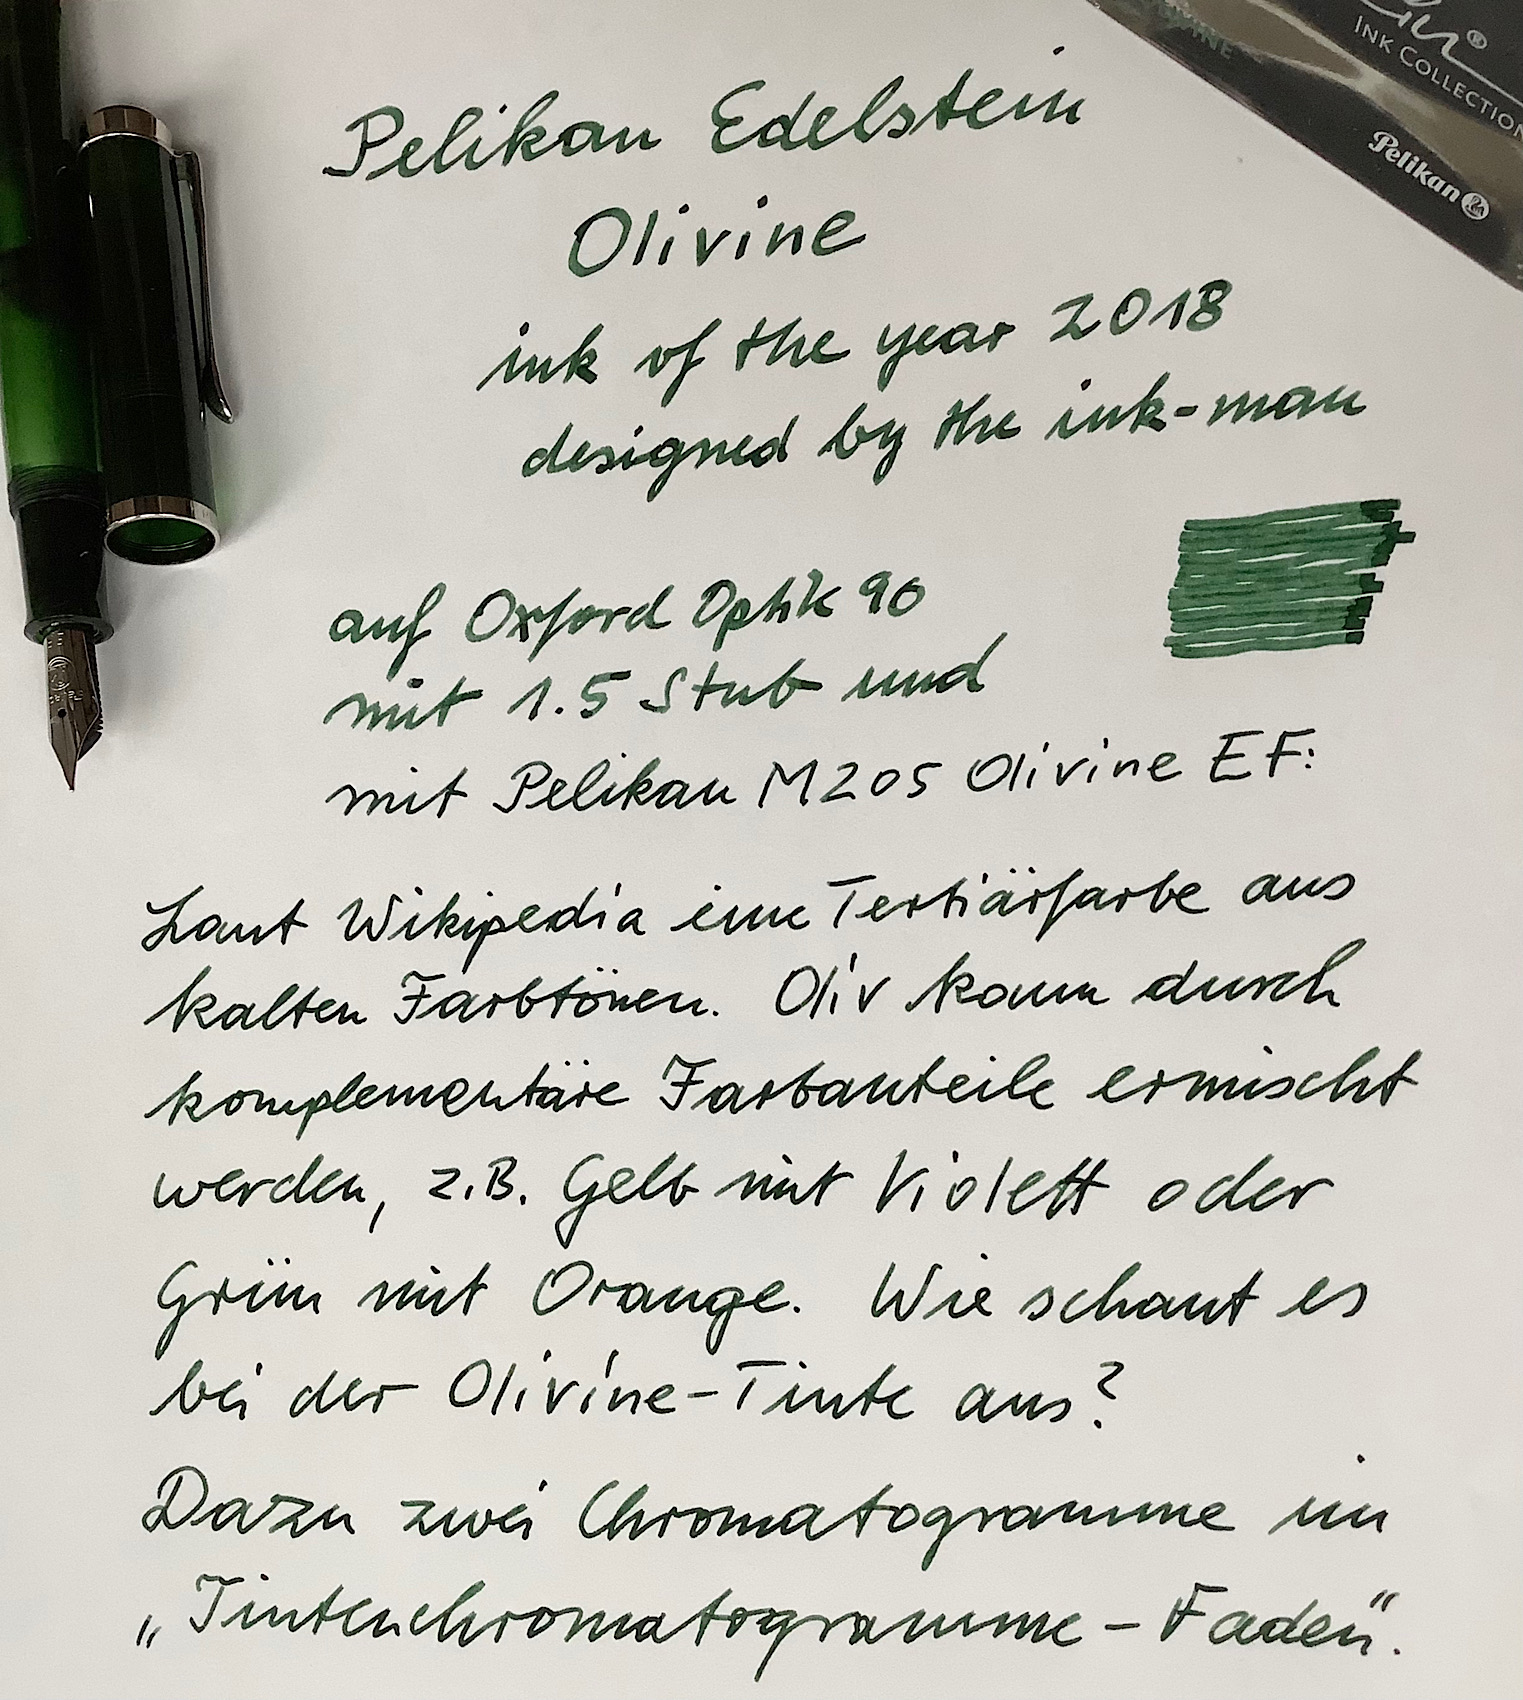 Pelikan Edelstein
Olivine
ink of the year 2018
designed by the ink-man
auf Oxford Optik 90
mit 1.5 Stub und
mit Pelikan M205 Olivine EF:
Laut Wikipedia eine Tertiärfarbe aus
kalten Farbtönen. Oliv kann durch
komplementäre Farbanteile ermischt
werden, z.B. Gelb mit Violett oder
Grün mit Orange. Wie schaut es
bei der Olivine-Tinte aus?
Dazu zwei Chromatogramme im
„Tintenchromatogramme - Faden".
INK COLLECTION
Pelikan